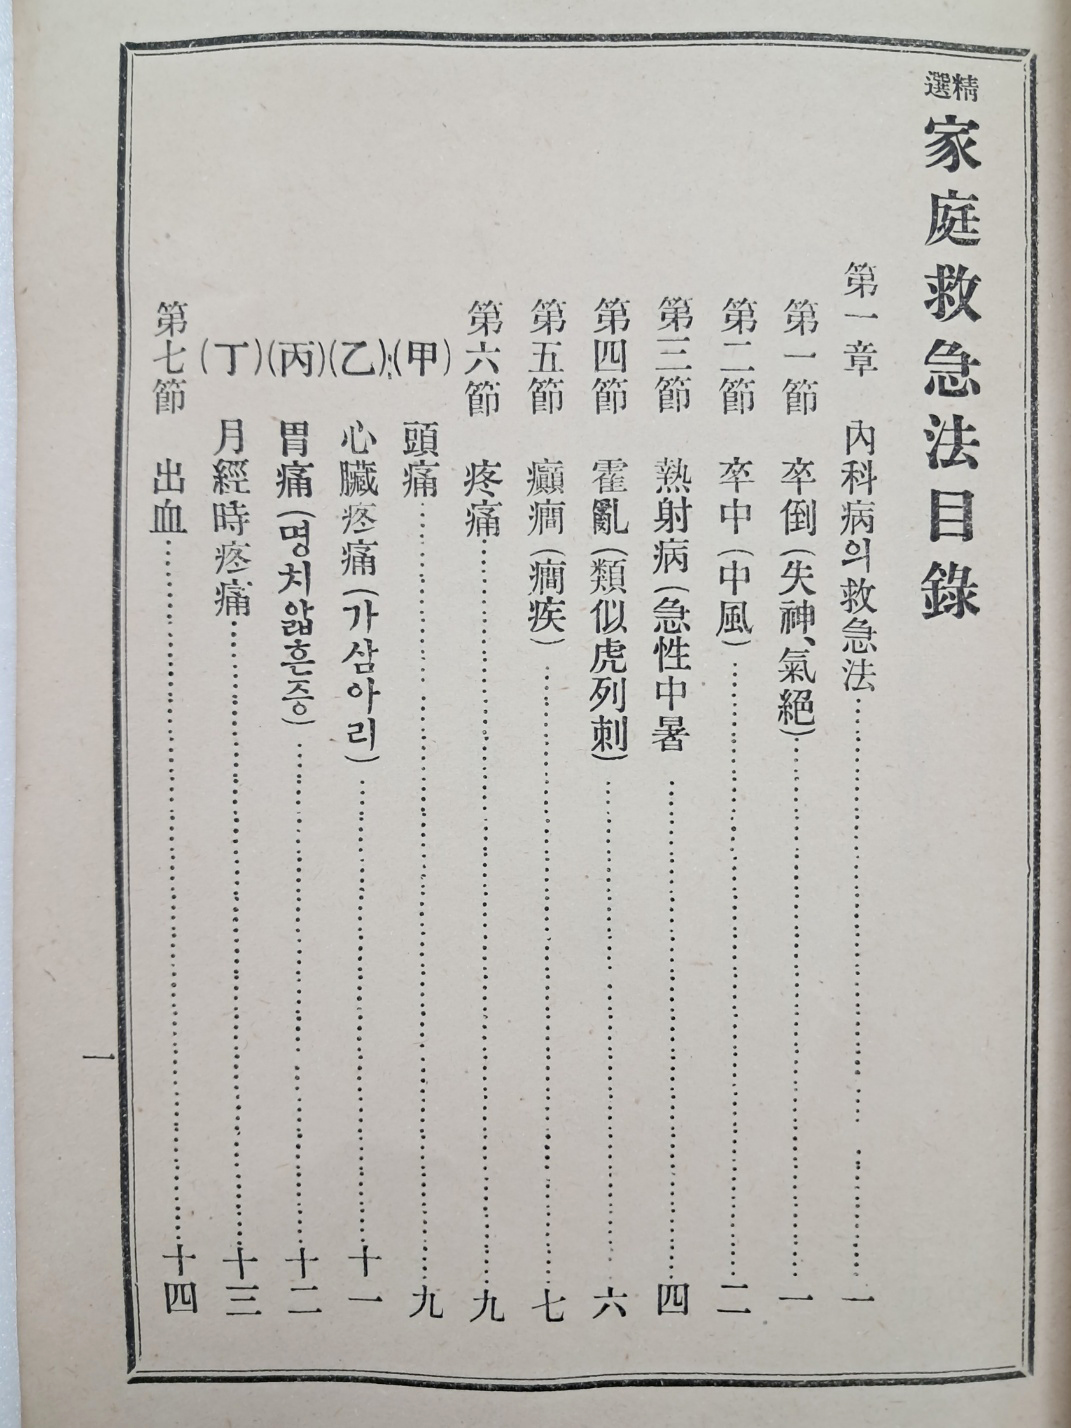 精選 家庭救急法目錄
第一章 內科病의救急法 一
第一節 卒倒(失神、氣絕) 一
第二節 卒中(中風) 二
第三節 熱射病(急性中暑 四
第四節 霍亂(類似虎列刺) 六
第五節 癲癎(癎疾) 七
第六節 疼痛 九
(甲) 頭痛 九
(乙) 心臟疼痛(가삼아리) 十一
(丙) 胃痛(명치앏흔증) 十二
(丁) 月經時疼痛 十三
第七節 出血 十四
一